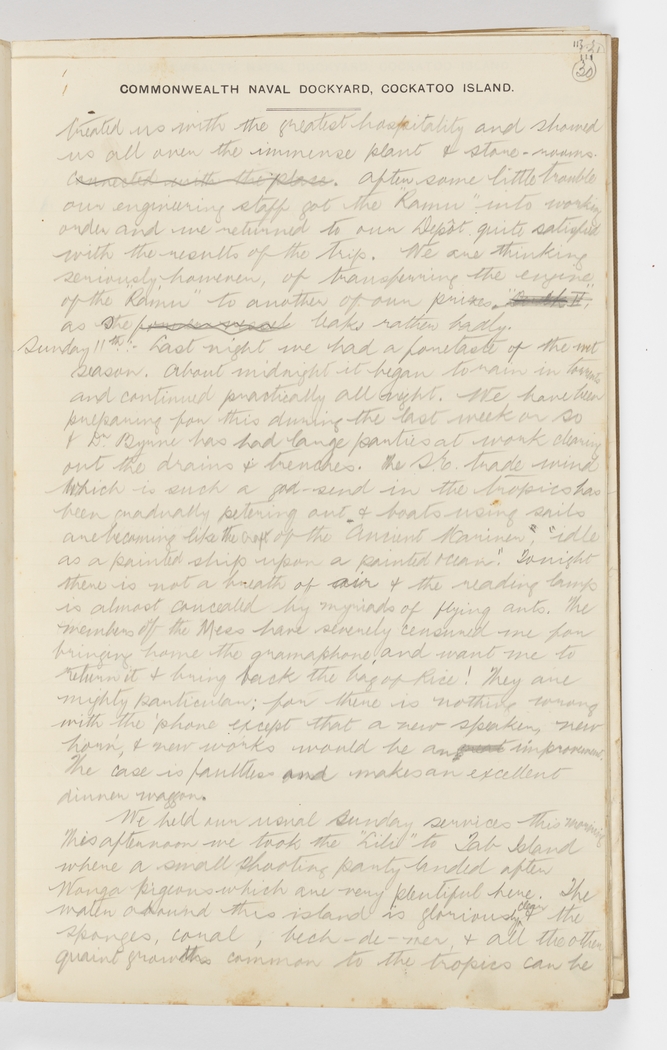 30
COMMONWEALTH NAVAL DOCKYARD, COCKATOO ISLAND.
treated us with the greatest hospitality and showed
us all over the immense plant & store-rooms
connected with the place. After some little trouble
our engineering staff got the "Ramu" into working
order and we returned to our Depôt quite satisfied
with the results of the trip. We are thinking
seriously however, of transferring the engine
of the "Ramu" to another of our prizes,
as she leaks rather badly.
Sunday 11th:- Last night we had a foretaste of the wet
season. About midnight it began to rain in torrents
and continued practically all night. We have been
preparing for this during the last week or so
& Dr Byrne has had large parties at work clearing
out the drains & trenches. The S.E. trade wind
which is such a god-send in the tropics has
been gradually petering out & boats using sails
are becoming like the craft of the "Ancient Mariner", "idle
as a painted ship upon a painted ocean". Tonight
there is not a breath of air & the reading lamp
is almost concealed by myriads of flying ants. The
members of the Mess have severely censured me for
bringing home the gramaphone, and want me to
return it & bring back the bag of Rice! They are
mighty particular; for there is nothing wrong
with the 'phone except that a new speaker, new
horn, & new works would be an improvement.
The case is faultless and makes an excellent
dinner waggon.
We held our usual Sunday services this morning
This afternoon we took the "Lili" to Tab Island
where a small shooting party landed after
Wonga pigeons which are very plentiful here. The
water around this island is gloriously clear & the
sponges, coral, bech-de-mer, & all the other
quaint growths common to the tropics can be